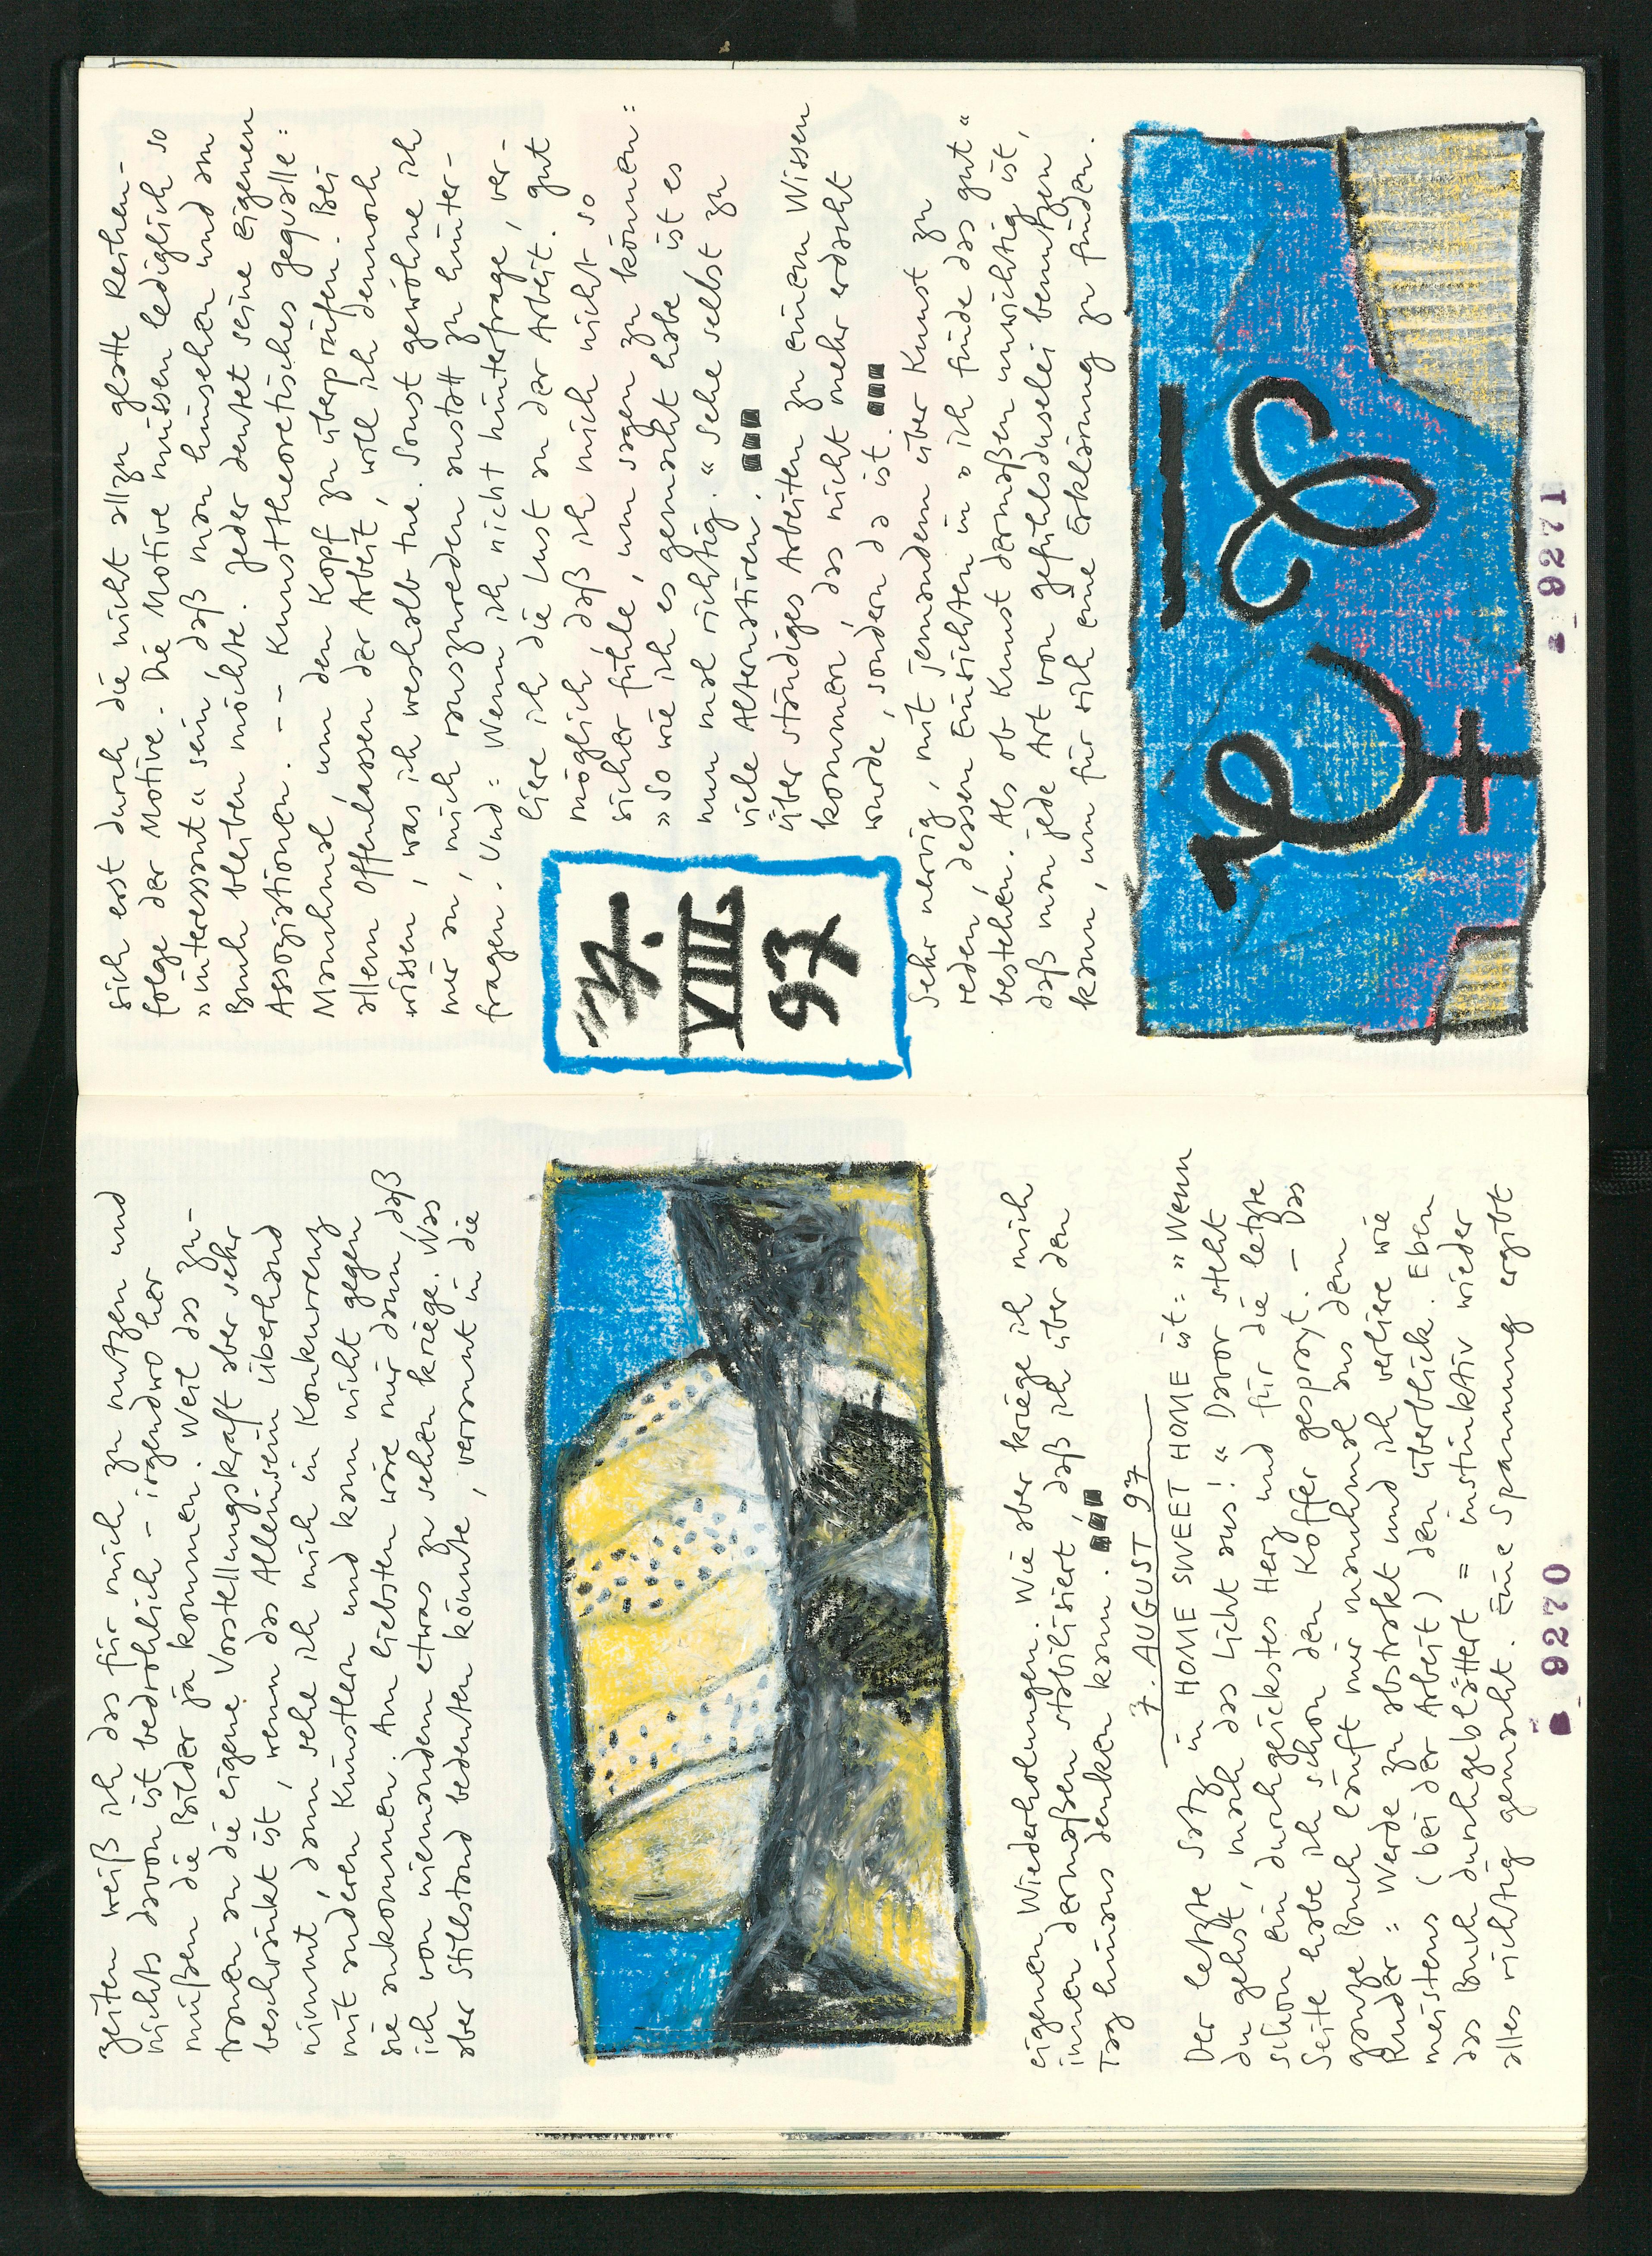 zeiten weiß ich das für mich zu nutzen und
nichts davon ist bedrohlich – irgendwo her
müßen die Bilder ja kommen. Weil das Zu-
trauen an die eigene Vorstellungskraft aber sehr
beschränkt ist, wenn das Alleinsein überhand
nimmt, dann sehe ich mich in Konkurrenz
mit anderen Künstlern und kann nicht gegen
sie ankommen. Am liebsten wäre mir dann, daß
ich von niemandem etwas zu sehen kriege. Was
aber Stillstand bedeuten könnte, verrannt in die
eigenen Wiederholungen. Wie aber kriege ich mich
innen dermaßen stabilisiert, daß ich über den
Tag hinaus denken kann.
7. AUGUST 97
Der letzte Satz in HOME SWEET HOME ist: »Wenn
du gehst, mach das Licht aus!« Davor steht
schon ein durchgeickstes Herz und für die letzte
Seite habe ich schon den Koffer gesprayt. – Das
ganze Buch läuft mir manchmal aus dem
Ruder: Werde zu abstrakt und ich verliere wie
meistens (bei der Arbeit) den Überblick. Eben
das Buch durchgeblättert = instinktiv wieder
alles richtig gemacht. Eine Spannung ergibt
9270
sich erst durch die nicht allzu glatte Reihen-
folge der Motive. Die Motive müssen lediglich so
»interessant« sein, daß man hinsehen und am
Buch bleiben möchte. Jeder deutet seine eigenen
Assoziationen. -- Kunsttheoretisches gequalle:
Manchmal, um den Kopf zu überprüfen. Bei
allem Offenlassen der Arbeit, will ich dennoch
wissen, was ich weshalb tue. Sonst gewöhne ich
mir an, mich rauszureden anstatt zu hinter-
fragen. Und: Wenn ich nicht hinterfrage, ver-
liere ich die Lust an der Arbeit. Gut
möglich, daß ich mich nicht so
sicher fühle, um sagen zu können:
»So wie ich es gemacht habe ist es
nun mal richtig.« Sehe selbst zu
viele Alternativen.
Über ständiges Arbeiten zu einem Wissen
kommen, das nicht mehr erdacht
wurde, sondern da ist.
7.
VIII
97
Sehr nervig, mit jemandem über Kunst zu
reden, dessen Einsichten in »ich finde das gut«
bestehen. Als ob Kunst dermaßen unwichtig ist,
daß man jede Art von Gefühlsduselei benutzen
kann, um für sich eine Erklärung zu finden.
9271